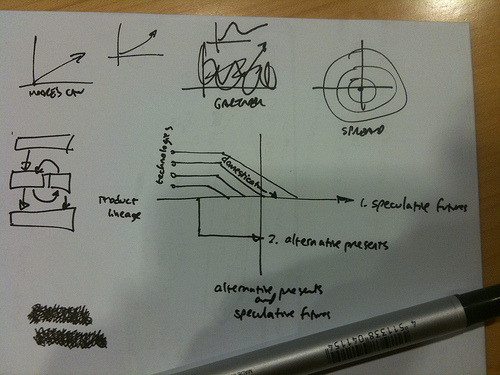 MOORE'S LAW
GARTNER
SPREAD
technologies
domestication
product
lineage
1. speculative futures
2. alternative presents
alternative presents
and
speculative futures
4 571338 041154